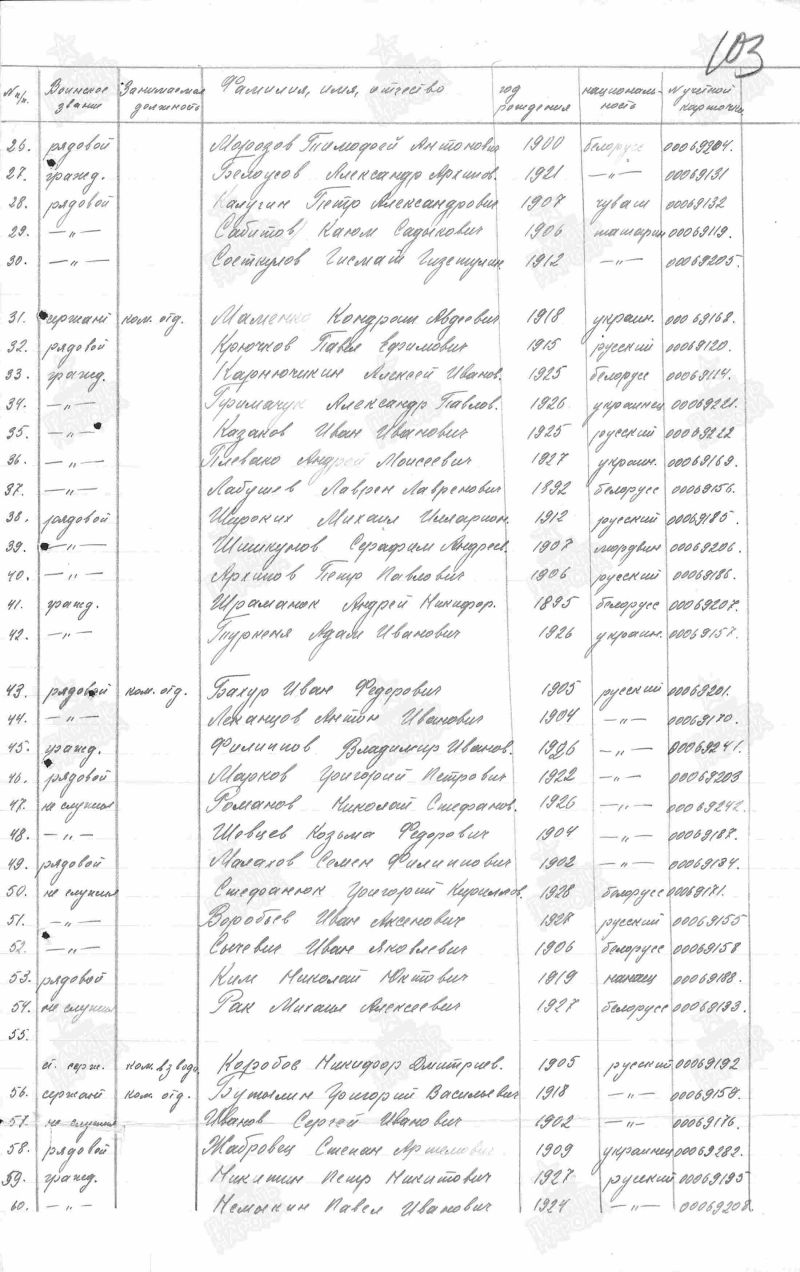 103
№ п/п. Воинское звание Занимаемая должность Фамилия, имя, отчество год рождения национальность № учетной карточки
26. рядовой Морозов Тимофей Антонович 1900 белорусс 00069204.
27. гражд. Белоусов Александр Архипов. 1921 —„— 00069131
28. рядовой Калугин Петр Александрович 1907 чуваш 00069132
29. —„— Сабитов Каюм Садыкович 1906 татарин 00069119.
30. —„— 1912 —„— 00069205.
31. сержант ком. отд. Маменко Кондрат Авдеевич 1918 украин. 00069168.
32. рядовой Крючков Павел Ефимович 1915 русский 00069120.
33. гражд. Карнючикин Алексей Иванов. 1925 белорусс 00069114.
34. —„— Гуримачук Александр Павлов. 1926 украинец 00069221.
35. —„— Казаков Иван Иванович 1925 русский 00069222
36. —„— Плевако Андрей Моисеевич 1927 украин. 00069169.
37. —„— Лабушев Лаврен Лавренович 1892 белорусс 00069156.
38. рядовой Широких Михаил Илларион. 1912 русский 00069185.
39. —„— Шишкунов Серафим Андреев. 1907 мордвин 00069206.
40. —„— Архипов Петр Павлович 1906 русский 00069186.
41. гражд. Шраманюк Андрей Никифор. 1895 белорусс 00069207.
42. —„— Туркеня Адам Иванович 1926 украин. 00069157.
43. рядовой ком. отд. Бахур Иван Федорович 1905 русский 00069201.
44. —„— Леканцов Антон Иванович 1904 —„— 00069170.
45. гражд. Филиппов Владимир Иванов. 1926 —„— 00069241.
46. рядовой Марков Григорий Петрович 1922 —„— 00069203
47. не служил Романов Николай Стефанов. 1926 —„— 00069242.
48. —„— Шевцев Козьма Федорович 1904 —„— 00069187.
49. рядовой Малахов Семен Филиппович 1902 —„— 00069134.
50. не служил Стефанюк Григорий Кириллов. 1928 белорусс 00069171.
51. —„— Воробьев Иван Аксенович 1927 русский 00069155
52. —„— Сычевич Иван Яковлевич 1906 белорусс 00069158
53. рядовой Ким Николай Юктович 1919 нанаец 00069188.
54. не служил Рак Михаил Алексеевич 1927 белорусс 00069193.
55.
ст. серж. ком. взвода Коробов Никифор Дмитриев. 1905 русский 00069192
56. сержант ком. отд. Бутылин Григорий Васильевич 1918 —„— 00069159.
57. не служил Иванов Сергей Иванович 1902 —„— 00069176.
58. рядовой Жабровец Степан Артемович 1909 украинец 00069282.
59. гражд. Никитин Петр Никитович 1927 русский 00069195
60. —„— Немыкин Павел Иванович 1924 —„— 00069208.